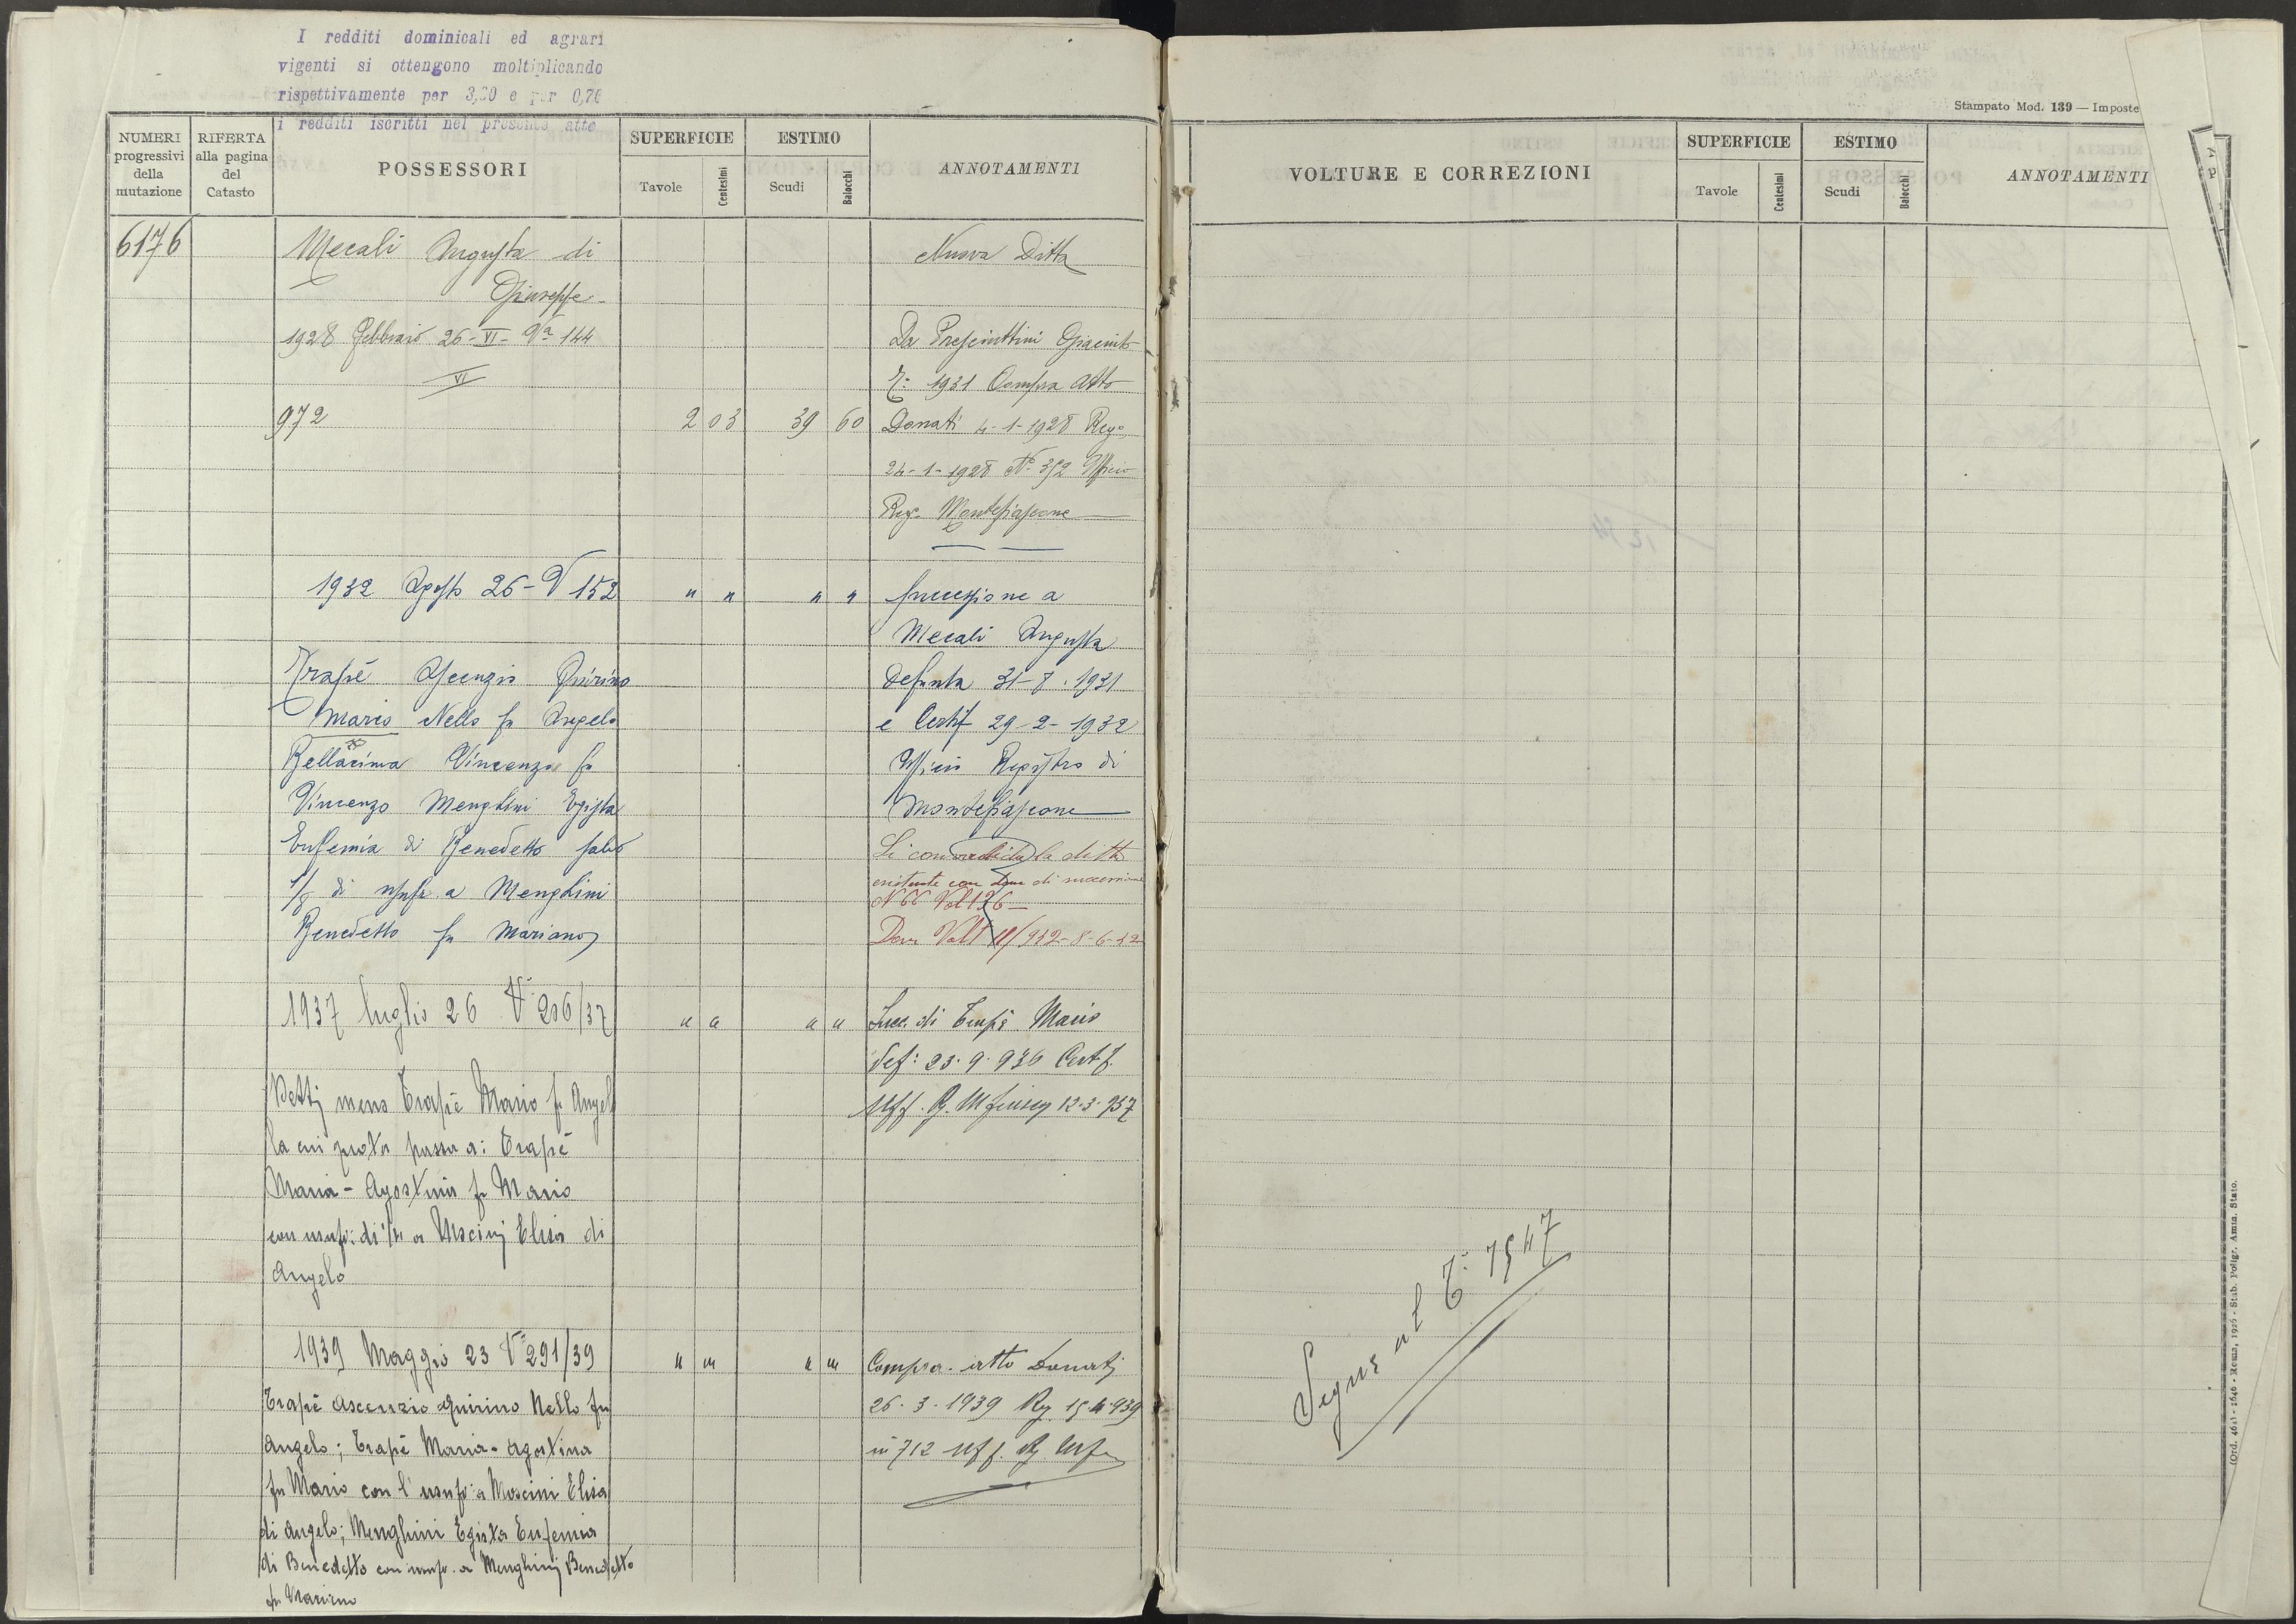 I redditi dominicali ed agrari
vigenti si ottengono moltiplicando
rispettivamente per 3,20 e per 0,76
i redditi iscritti nel presente atto
NUMERI progressivi della mutazione
RIFERTA alla pagina del Catasto
POSSESSORI
SUPERFICIE
Tavole
Centesimi
ESTIMO
Scudi
Baiocchi
ANNOTAMENTI
6176
Mecali Augusta di
Giuseppe
1928 Febbraio 26-VI- Va 144
VI
972 2 03 39 60
Nuova Ditta
Da Presciuttini Giacinto
1931 Compra Atto
Donati 4-1-1928 Reg.
24-1-1928 N. 352 Ufficio
Reg. Montefiascone
1932 Agosto 26-V 152 " " " "
Trapé Ascenzio Quirino
Mario Nello fu Angelo
Bellacima Vincenzo fu
Vincenzo Menghini Egista
Eufemia di Benedetto salvo
1/8 di usufr. a Menghini
Benedetto fu Mariano
Successione a
Mecali Augusta
defunta 31-8-1931
e Certif 29-2-1932
Ufficio Registro di
Montefiascone
Si convalida la ditta
esistente con Dom di successione
N 66 Vol 136
Dom Volt 11/932-8-6-32
1937 luglio 26 V 206/37 " " " "
Detti meno Trapé Mario fu Angelo
la cui quota passa a: Trapé
Maria - Agostina fu Mario
con usufr: di 1/4 a Moscinj Elisa di
Angelo
Succ. di Trapé Mario
def: 23.9.936 Certif.
Uff. R. Mfiascon 12.3.937
1939 Maggio 23 V 291/39 " " " "
Trapé Ascenzio Quirino Nello fu
Angelo; Trapé Maria-Agostina
fu Mario con l'usufr: a Moscini Elisa
di Angelo; Menghini Egista Eufemia
di Benedetto con usufr. a Menghinj Benedetto
fu Mariano
Compra. atto Donatj
26.3.1939 Reg. 15.4.939
n 712 Uff. R. Mf
Stampato Mod. 139 — Imposte
VOLTURE E CORREZIONI
SUPERFICIE
Tavole
Centesimi
ESTIMO
Scudi
Baiocchi
ANNOTAMENTI
Segue al T. 7547
(Ord. 461) - 2646 - Roma, 1926 - Stab. Poligr. Amm. Stato.